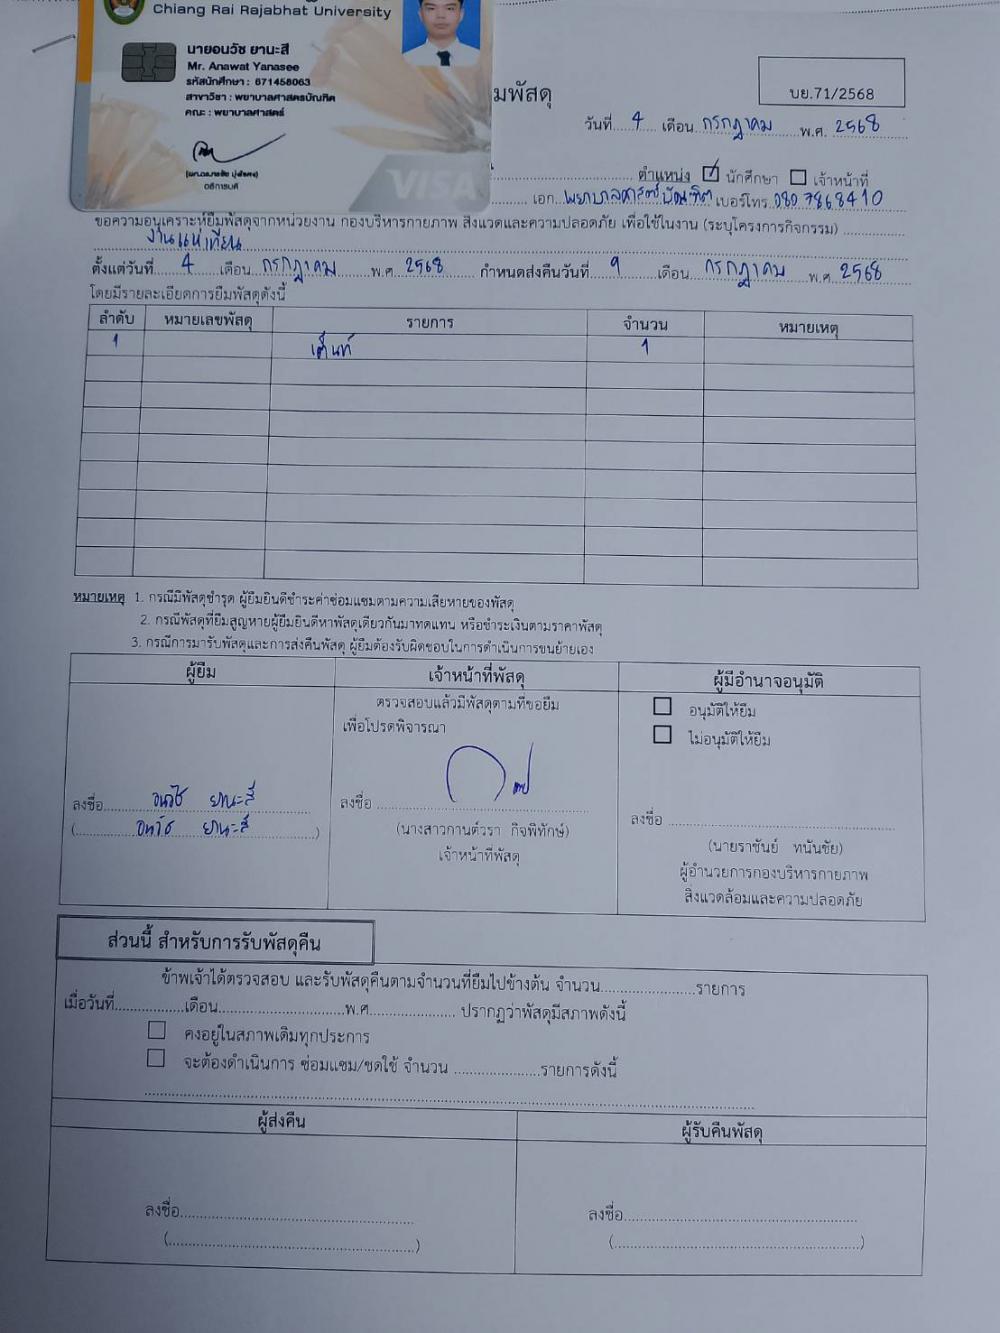 Chiang Rai Rajabhat University
นายอนวัช ยานะสี
Mr. Anawat Yanasee
รหัสนักศึกษา : 671458063
สาขาวิชา : พยาบาลศาสตรบัณฑิต
คณะ : พยาบาลศาสตร์
อธิการบดี
VISA
มพัสดุ
บย.71/2568
วันที่ 4 เดือน กรกฎาคม พ.ศ. 2568
ตำแหน่ง ☑ นักศึกษา ☐ เจ้าหน้าที่
เอก พยาบาลศาสตร์บัณฑิต เบอร์โทร 080 7868410
ขอความอนุเคราะห์ยืมพัสดุจากหน่วยงาน กองบริหารกายภาพ สิ่งแวดและความปลอดภัย เพื่อใช้ในงาน (ระบุโครงการกิจกรรม)
งานแห่เทียน
ตั้งแต่วันที่ 4 เดือน กรกฎาคม พ.ศ 2568 กำหนดส่งคืนวันที่ 9 เดือน กรกฎาคม พ.ศ 2568
โดยมีรายละเอียดการยืมพัสดุดังนี้
ลำดับ หมายเลขพัสดุ รายการ จำนวน หมายเหตุ
1 เต็นท์ 1
หมายเหตุ 1. กรณีมีพัสดุชำรุด ผู้ยืมยินดีชำระค่าซ่อมแซมตามความเสียหายของพัสดุ
2. กรณีพัสดุที่ยืมสูญหายผู้ยืมยินดีหาพัสดุเดียวกันมาทดแทน หรือชำระเงินตามราคาพัสดุ
3. กรณีการมารับพัสดุและการส่งคืนพัสดุ ผู้ยืมต้องรับผิดชอบในการดำเนินการขนย้ายเอง
ผู้ยืม เจ้าหน้าที่พัสดุ ผู้มีอำนาจอนุมัติ
ตรวจสอบแล้วมีพัสดุตามที่ขอยืม
เพื่อโปรดพิจารณา
☐ อนุมัติให้ยืม
☐ ไม่อนุมัติให้ยืม
ลงชื่อ อนวัช ยานะสี
(อนวัช ยานะสี)
ลงชื่อ
(นางสาวกานต์วรา กิจพิทักษ์)
เจ้าหน้าที่พัสดุ
ลงชื่อ
(นายราชันย์ ทนันชัย)
ผู้อำนวยการกองบริหารกายภาพ
สิ่งแวดล้อมและความปลอดภัย
ส่วนนี้ สำหรับการรับพัสดุคืน
ข้าพเจ้าได้ตรวจสอบ และรับพัสดุคืนตามจำนวนที่ยืมไปข้างต้น จำนวน รายการ
เมื่อวันที่ เดือน พ.ศ. ปรากฏว่าพัสดุมีสภาพดังนี้
☐ คงอยู่ในสภาพเดิมทุกประการ
☐ จะต้องดำเนินการ ซ่อมแซม/ชดใช้ จำนวน รายการดังนี้
ผู้ส่งคืน ผู้รับคืนพัสดุ
ลงชื่อ ลงชื่อ